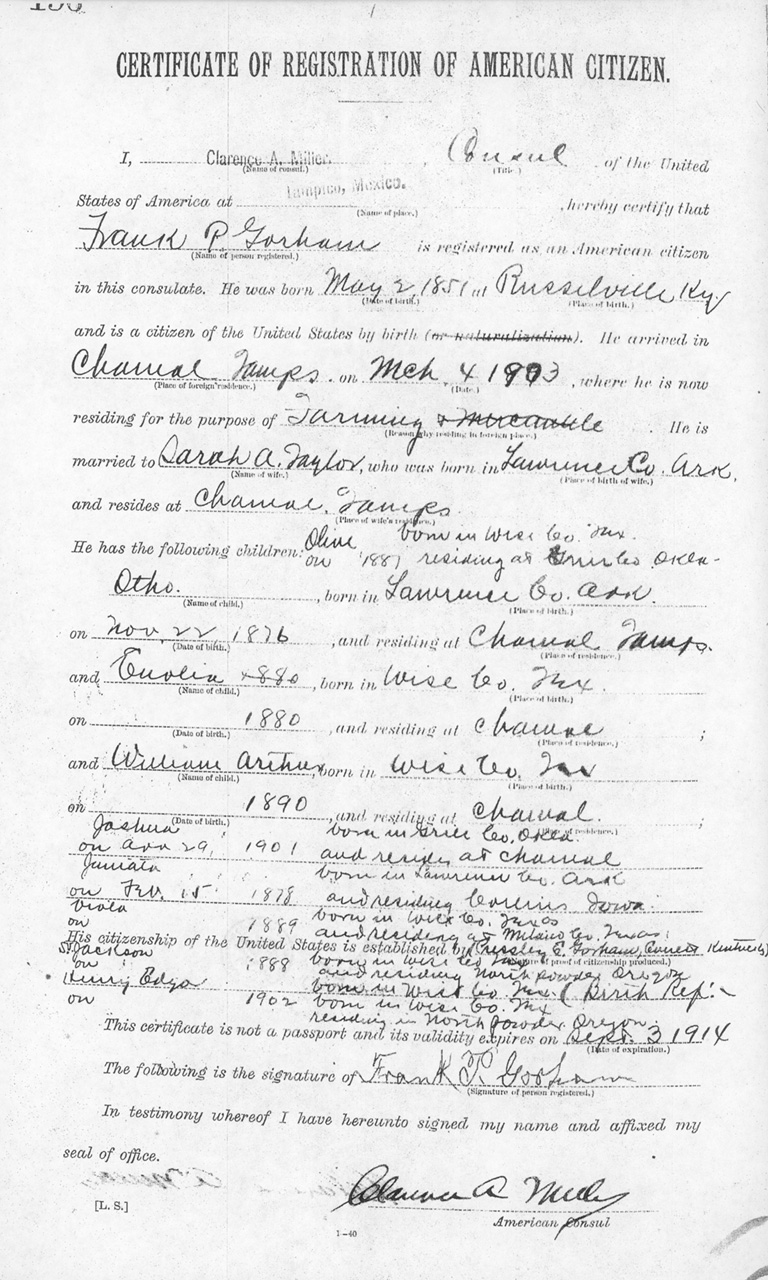 CERTIFICATE OF REGISTRATION OF AMERICAN CITIZEN.
I, Clarence A. Miller, Consul of the United
(Name of consul.) (Title.)
States of America at Tampico, Mexico. , hereby certify that
(Name of place.)
Frank P. Gorham is registered as an American citizen
(Name of person registered.)
in this consulate. He was born May 2, 1851 at Russelville Ky
(Date of birth.) (Place of birth.)
and is a citizen of the United States by birth (or naturalization). He arrived in
Chamal Tamps. on Mch. 4 1903, where he is now
(Place of foreign residence.) (Date.)
residing for the purpose of Farming & Mercantile. He is
(Reason why residing in foreign place.)
married to Sarah A. Taylor, who was born in Lawrence Co. Ark.
(Name of wife.) (Place of birth of wife.)
and resides at Chamal, Tamps.
(Place of wife's residence.)
He has the following children: Olive born in Wise Co. Tex.
on 1881 residing at Co Okla-
Otho. , born in Lawrence Co. Ark.
(Name of child.) (Place of birth.)
on Nov. 22, 1876 , and residing at Chamal Tamps.
(Date of birth.) (Place of residence.)
and 1880 , born in Wise Co. Tex.
(Name of child.) (Place of birth.)
on 1880 , and residing at Chamal ;
(Date of birth.) (Place of residence.)
and William Arthur, born in Wise Co. Tex
(Name of child.) (Place of birth.)
on 1890 , and residing at Chamal. ;
(Date of birth.) (Place of residence.)
Joshua born in Greer Co. Okla.
on 29, 1901 and resides at Chamal
born in Lawrence Co. Ark
on Feb. 15 1878 and residing Iowa.
Viola born in Wise Co. Texas
on 1889 and residing at Co. Texas
His citizenship of the United States is established by Gorham, Kentucky
(Nature of proof of citizenship produced.)
Jackson born in Wise Co Tex
on 1888 and residing North Powder Oregon
Henry Edgar born in Wise Co. Tex. (Birth Rep.
on 1902 born in Wise Co. Tex
residing in North Powder, Oregon.
This certificate is not a passport and its validity expires on Sept. 3 1914
(Date of expiration.)
The following is the signature of Frank P. Gorham
(Signature of person registered.)
In testimony whereof I have hereunto signed my name and affixed my
seal of office.
Clarence A Miller
[L. S.]
American Consul
1—40